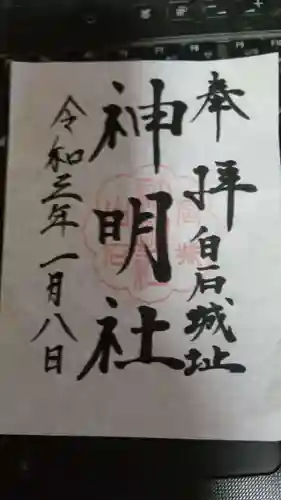 奉拝 白石城址
神明社
令和三年一月八日